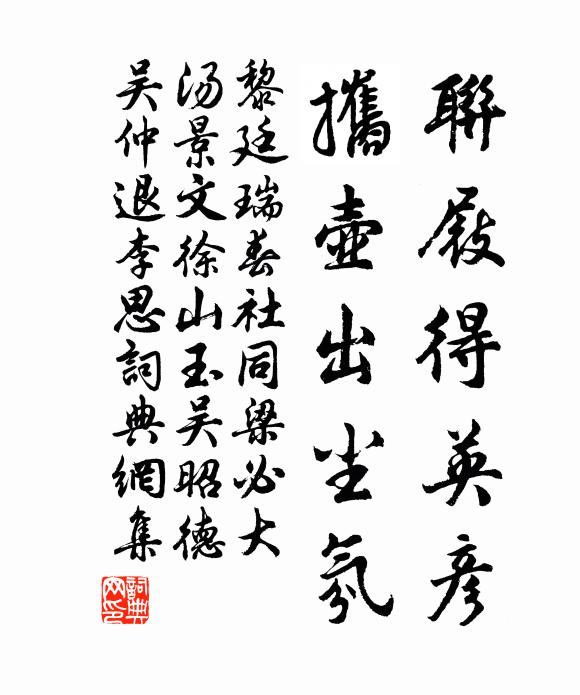 聯屐得英彥
攜壺出尘氛
黎廷瑞春社同梁必大
汤景文徐山玉吴昭德
吴仲退李思詞典網集
詞典网印